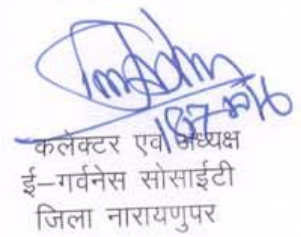 कलेक्टर एवं अध्यक्ष
ई–गर्वनेस सोसाईटी
जिला नारायणुपर